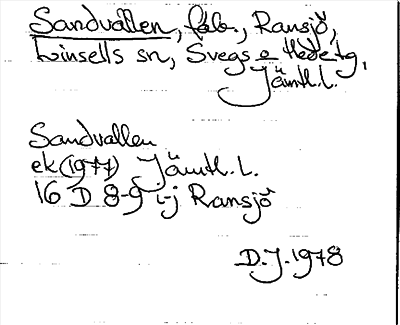 Sandvallen, fäb., Ransjö,
Linsells sn, Svegs o Hede tg,
Jämtl. l.
Sandvallen
ek (1977) Jämtl. L.
16 D 8-9 i-j Ransjö
D.J. 1978